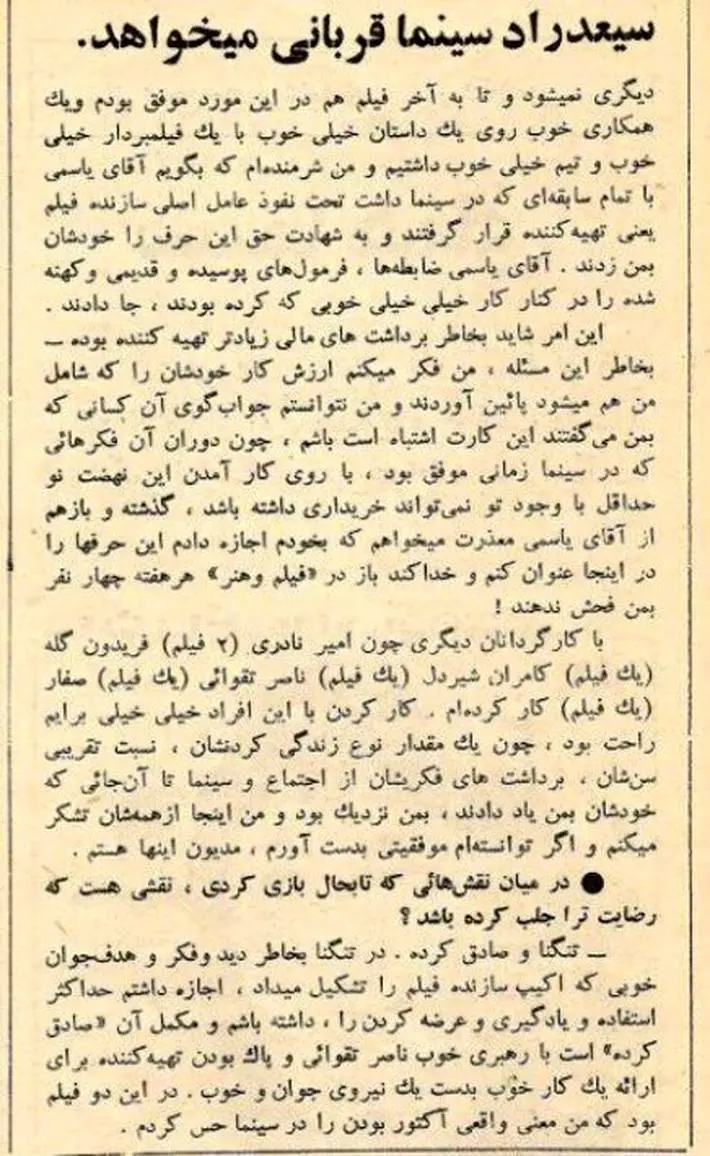 سیعدراد سینما قربانی میخواهد.
دیگری نمیشود و تا به آخر فیلم هم در این مورد موفق بودم ویك
همکاری خوب روی یك داستان خیلی خوب با یك فیلمبردار خیلی
خوب و تیم خیلی خوب داشتیم و من شرمنده‌ام که بگویم آقای یاسمی
با تمام سابقه‌ای که در سینما داشت تحت نفوذ عامل اصلی سازنده فیلم
یعنی تهیه‌کننده قرار گرفتند و به شهادت حق این حرف را خودشان
بمن زدند . آقای یاسمی ضابطه‌ها ، فرمول‌های پوسیده و قدیمی وکهنه
شده را در کنار کار خیلی خیلی خوبی که کرده بودند ، جا دادند .
این امر شاید بخاطر برداشت های مالی زیادتر تهیه کننده بوده —
بخاطر این مسئله ، من فکر میکنم ارزش کار خودشان را که شامل
من هم میشود پائین آوردند و من نتوانستم جواب‌گوی آن کسانی که
بمن می‌گفتند این کارت اشتباه است باشم ، چون دوران آن فکرهائی
که در سینما زمانی موفق بود ، با روی کار آمدن این نهضت نو
حداقل با وجود تو نمی‌تواند خریداری داشته باشد ، گذشته و بازهم
از آقای یاسمی معذرت میخواهم که بخودم اجازه دادم این حرفها را
در اینجا عنوان کنم و خداکند باز در «فیلم وهنر» هرهفته چهار نفر
بمن فحش ندهند !
با کارگردانان دیگری چون امیر نادری (۲ فیلم) فریدون گله
(یك فیلم) کامران شیردل (یك فیلم) ناصر تقوائی (یك فیلم) صفار
(یك فیلم) کار کرده‌ام . کار کردن با این افراد خیلی خیلی برایم
راحت بود ، چون یك مقدار نوع زندگی کردنشان ، نسبت تقریبی
سن‌شان ، برداشت های فکریشان از اجتماع و سینما تا آن‌جائی که
خودشان بمن یاد دادند ، بمن نزدیك بود و من اینجا ازهمه‌شان تشکر
میکنم و اگر توانسته‌ام موفقیتی بدست آورم ، مدیون اینها هستم .
● در میان نقش‌هائی که تابحال بازی کردی ، نقشی هست که
رضایت ترا جلب کرده باشد ؟
— تنگنا و صادق کرده . در تنگنا بخاطر دید وفکر و هدف‌جوان
خوبی که اکیپ سازنده فیلم را تشکیل میداد ، اجازه داشتم حداکثر
استفاده و یادگیری و عرضه کردن را ، داشته باشم و مکمل آن «صادق
کرده» است با رهبری خوب ناصر تقوائی و پاك بودن تهیه‌کننده برای
ارائه یك کار خوب بدست یك نیروی جوان و خوب . در این دو فیلم
بود که من معنی واقعی آکتور بودن را در سینما حس کردم .